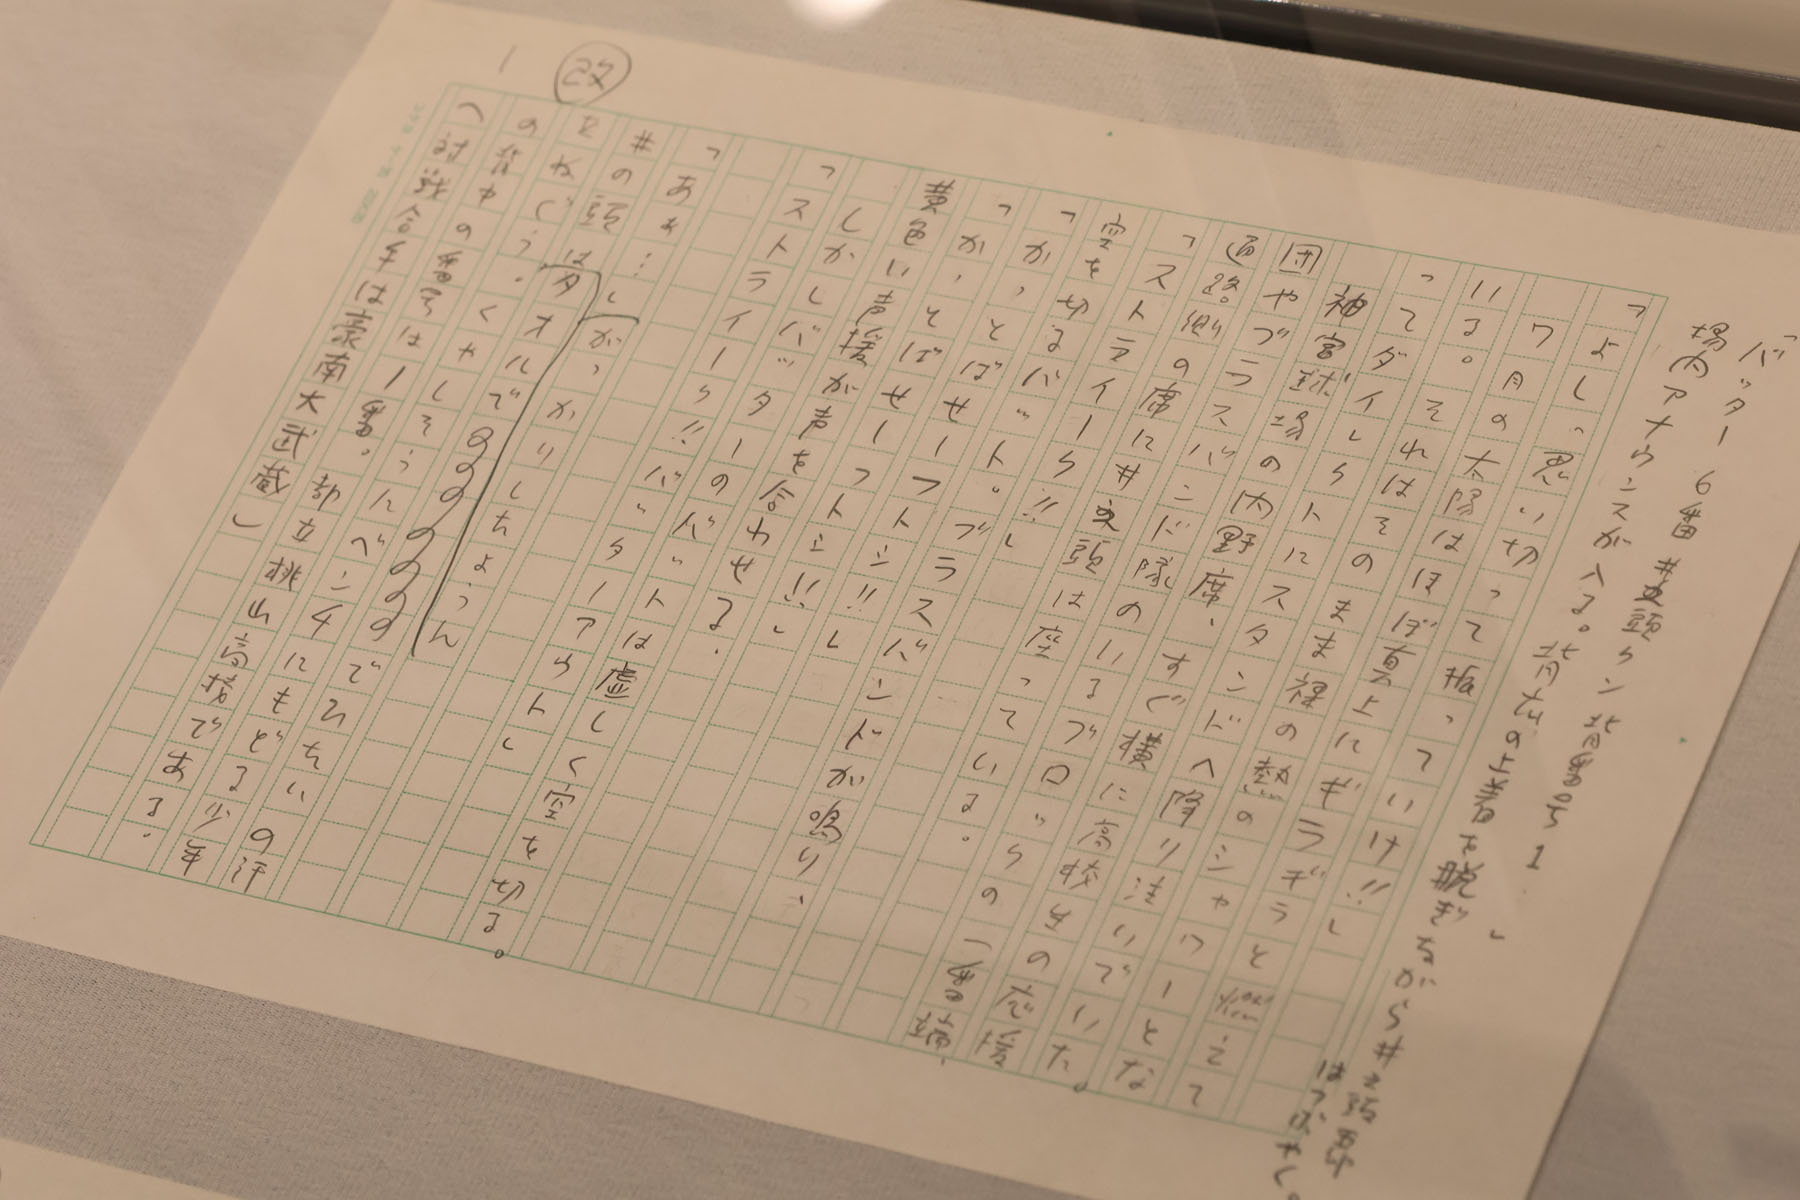 「バッター6番 井之頭クン 背番号1.」
場内アナウンスが入る。背広の上着を脱ぎながら井之頭五郎はつぶやく。
「よしっ思い切って振っていけ!!」
7月の太陽はほぼ真上にギラギラと燃えて
いる。それはそのまま裸の熱のシャワーとな
ってダイレクトにスタンドへ降り注いでいた。
神宮球場の内野席、すぐ横に高校生の応援
団やブラスバンド隊のいるブロックの一番端、
通路側の席に井之頭は座っている。
「ストライーク!!」
空を切るバット。ブラスバンドが鳴り、
「かっとばせーフトシ!!」
「かっとばせーフトシ!!」
黄色い声援が声を合わせる。
しかしバッターのバットは虚しく空を切る。
「ストライーク!!バッターアウト」
「あぁ…」がっかりし
井の頭はタオルでひたいの汗
をぬぐう。くやしそうにベンチにもどる少年
の背中の番号は1番。都立桃山高校である。
(対戦相手は豪南大武蔵)
改
1